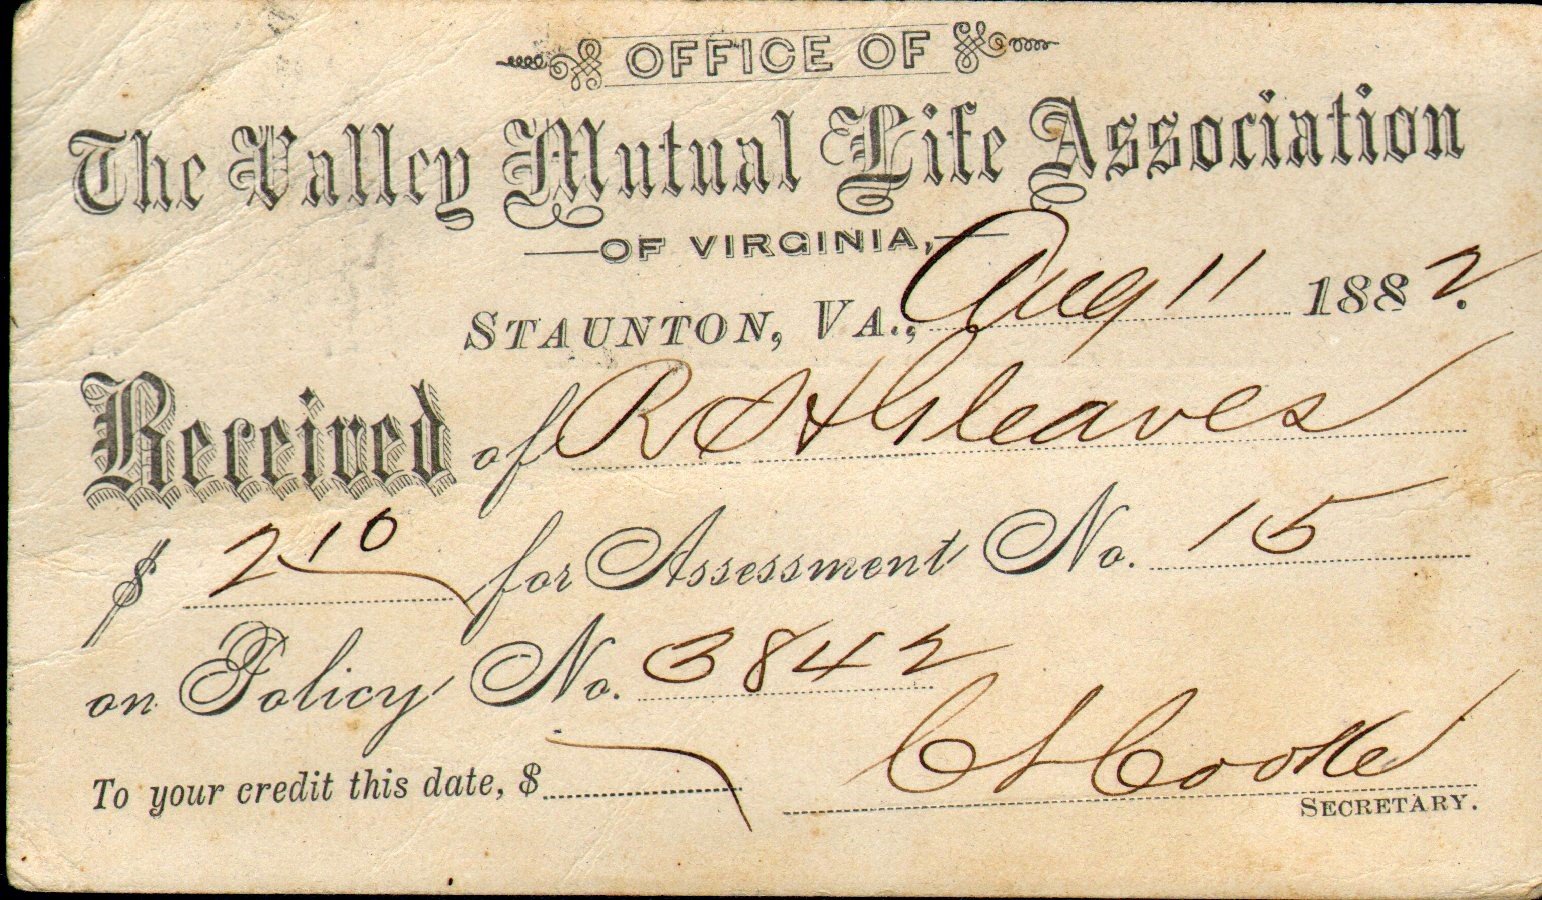 OFFICE OF
The Valley Mutual Life Association
OF VIRGINIA,
STAUNTON, VA., Aug 11 1882.
Received of R S H Gleaves
$ 2 10 for Assessment No. 15
on Policy No. 3842
To your credit this date, $
Cooke
SECRETARY.